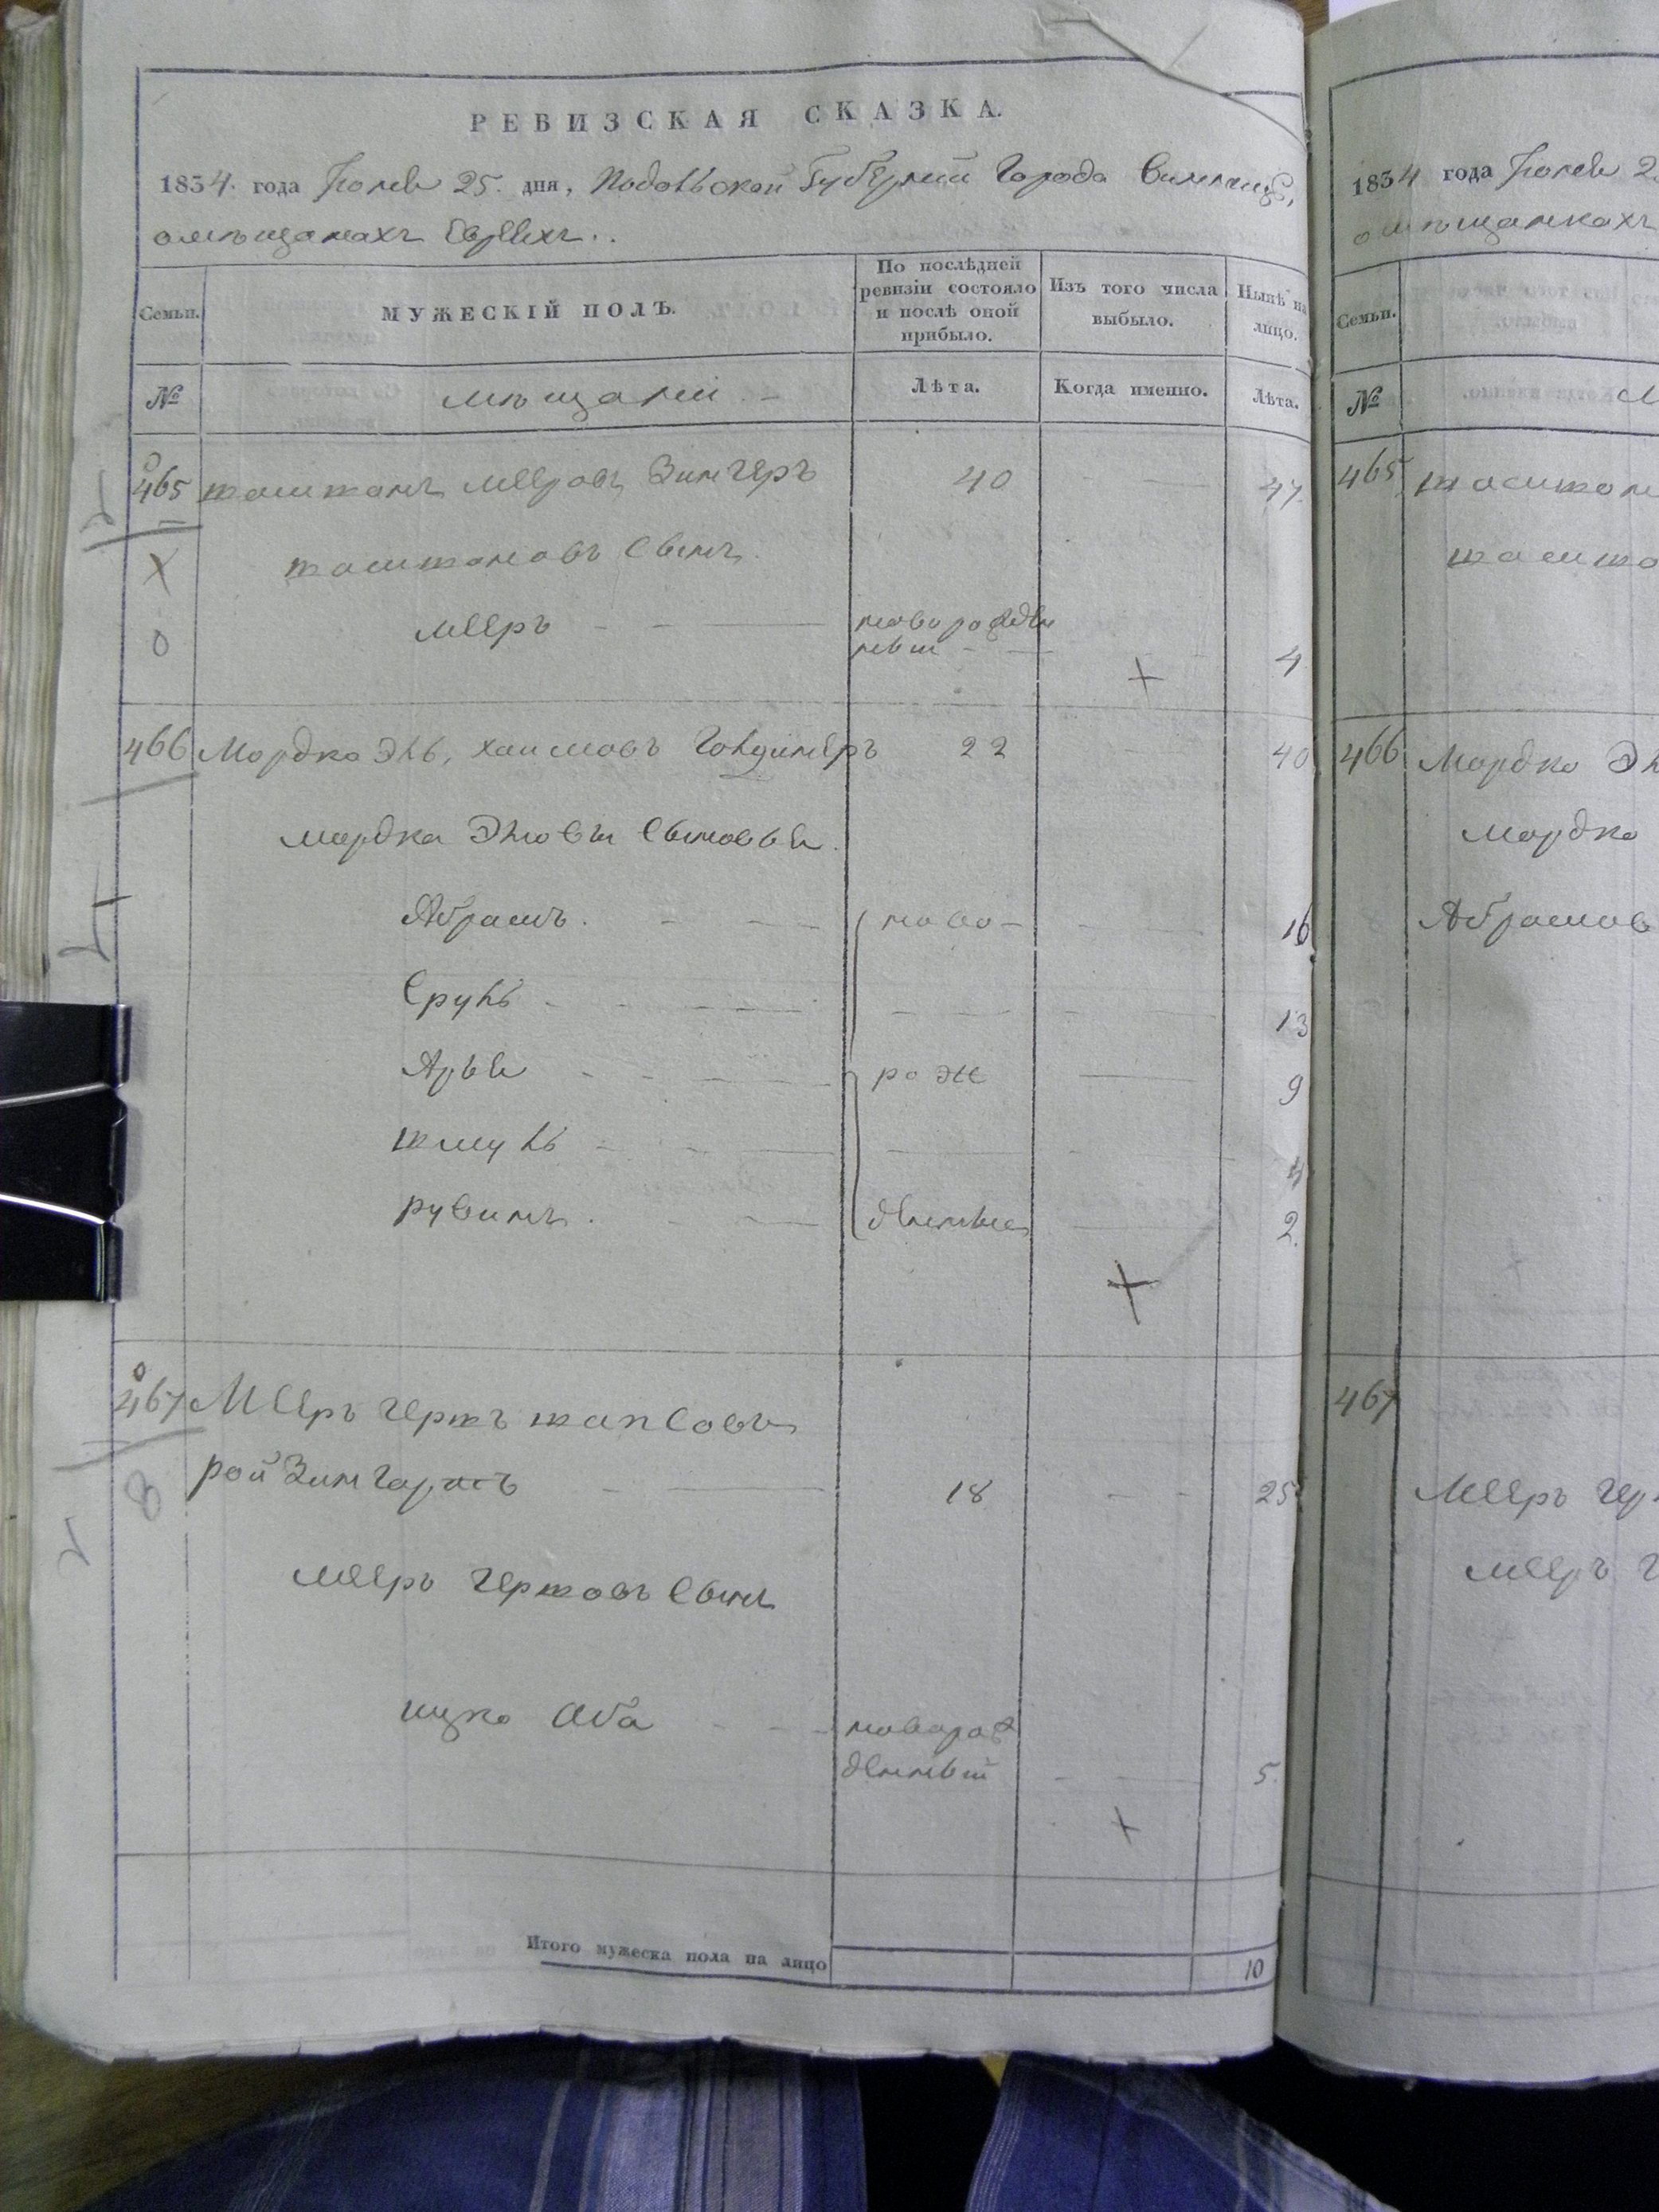 РЕВИЗСКАЯ СКАЗКА.
1834 года Июня 25 дня, Подольской Губернии Города Винницы,
о мѣщанахъ Евреяхъ.
Семьи. МУЖЕСКІЙ ПОЛЪ. По послѣдней ревизіи состояло и послѣ оной прибыло. Изъ того числа выбыло. Нынѣ на лицо.
№ мѣщани Лѣта. Когда именно. Лѣта.
465 Мееровъ Зингеръ 40 47
сынъ
Мееръ новорожден
ный 4
466 Мордко Эль, Хаимовъ 22 40
Мордка Эліовы сыновья
Абрамъ ново 16
Сруль 13
Арья рож 9
Шмуль 4
Рувинъ денные 2
467 Мееръ Гершъ
18 25
Мееръ Гершовъ сынъ
Ицко Аба новорож
денный 5
Итого мужеска пола на лицо 10
1834 года Июня 2
о мѣщанкахъ
Семьи.
№ М
465
466 Мордко Эл
Мордко
Абрамов
467
Мееръ Гер
Мееръ Г